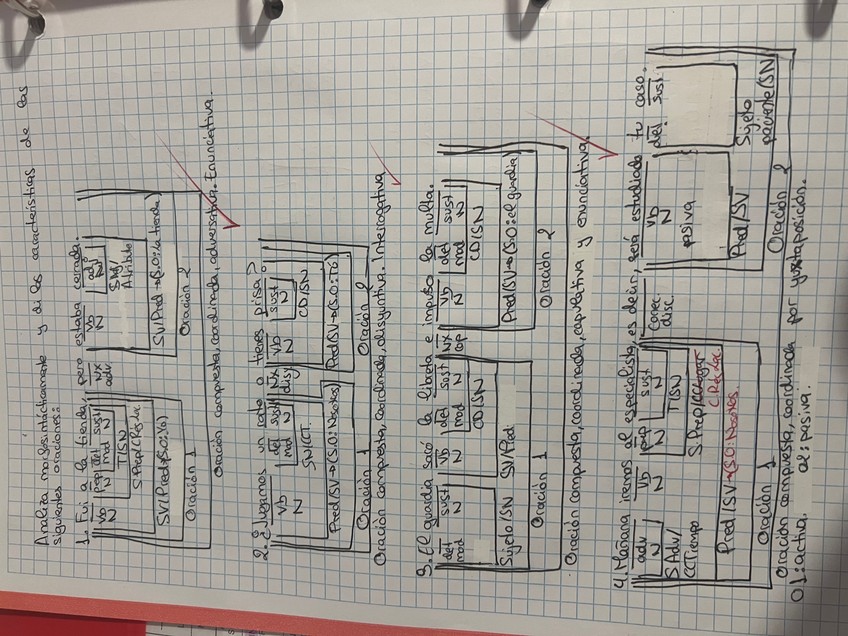 Analiza morfosintácticamente y di las características de las
siguientes oraciones:
1. Fui a la tienda, pero estaba cerrada.
Vb prep det sust NX Vb adj
N mod N adv N N
T/SN SAdj/
S.Prep/C.Rég. Atributo
SV/Pred→(S.O: Yo) SV/Pred→(S.O: la tienda)
Oración 1 Oración 2
Oración compuesta, coordinada, adversativa. Enunciativa.
2. ¿Jugamos un rato o tienes prisa?
Vb det sust NX Vb sust
N mod N disy N N
SN/CCT. CD/SN
Pred/SV→(S.O: Nosotros) Pred/SV→(S.O: Tú)
Oración 1 Oración 2
Oración compuesta, coordinada, disyuntiva. Interrogativa
3. El guardia sacó la libreta e impuso la multa.
det sust Vb det sust NX Vb det sust
mod N N mod N cop N mod N
CD/SN CD/SN
Sujeto/SN SV/Pred. Pred/SV→(S.O: el guardia)
Oración 1 Oración 2
Oración compuesta, coordinada, copulativa y enunciativa.
4. Mañana iremos al especialista, es decir, será estudiado tu caso.
adv Vb prep sust Conec. Vb det. sust.
N N N disc. N
SAdv/ T/SN pasiva
CCTiempo S.Prep/CCLugar
C.Rég.
Pred/SV→(S.O: Nosotros Pred/SV Sujeto
paciente/SN
Oración 1 Oración 2
Oración compuesta, coordinada por yuxtaposición.
O1: activa. O2: pasiva.